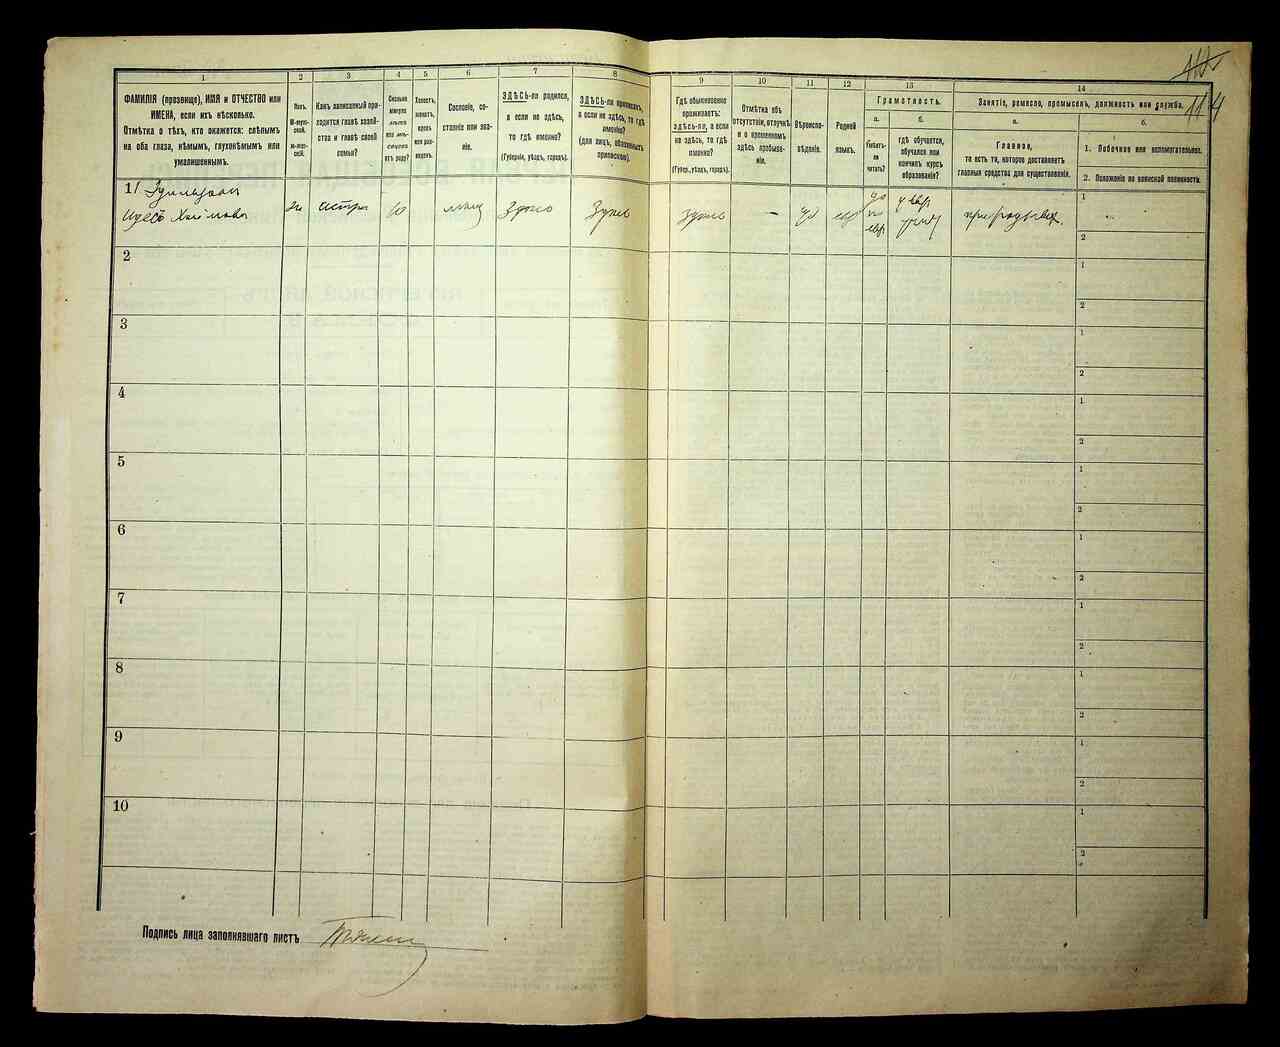 114
1
2
3
4
5
6
7
8
9
10
11
12
13
14
ФАМИЛІЯ (прозвище), ИМЯ и ОТЧЕСТВО или
ИМЕНА, если ихъ нѣсколько.
Отмѣтка о тѣхъ, кто окажется: слѣпымъ
на оба глаза, нѣмымъ, глухонѣмымъ или
умалишеннымъ.
Полъ.
М-мужской.
Ж-женской.
Какъ записанный приходится главѣ хозяйства и главѣ своей
семьи?
Сколько
минуло
лѣтъ
или мѣсяцевъ
отъ роду?
Холостъ,
женатъ,
вдовъ
или разведенъ.
Сословіе, состояніе или званіе.
ЗДѢСЬ-ли родился,
а если не здѣсь,
то гдѣ именно?
(Губернія, уѣздъ, городъ).
ЗДѢСЬ-ли приписанъ,
а если не здѣсь, то гдѣ
именно?
(для лицъ, обязанныхъ
припискою).
Гдѣ обыкновенно
проживаетъ:
здѣсь-ли, а если
не здѣсь, то гдѣ
именно?
(Губер., уѣздъ, городъ).
Отмѣтка объ
отсутствіи, отлучкѣ
и о временномъ
здѣсь пребываніи.
Вѣроисповѣданіе.
Родной
языкъ.
Грамотность.
а.
б.
Умѣетъ-ли
читать?
гдѣ обучается,
обучался или
кончилъ курсъ
образованія?
Занятіе, ремесло, промыселъ, должность или служба.
а.
б.
Главное,
то есть то, которое доставляетъ
главныя средства для существованія.
1. Побочное или вспомогательное.
2. Положеніе по воинской повинности.
1
сестра
10
здѣсь
здѣсь
здѣсь
—
іуд
евр
да
по
евр
1
2
2
1
2
3
1
2
4
1
2
5
1
2
6
1
2
7
1
2
8
1
2
9
1
2
10
1
2
Подпись лица заполнявшаго листъ